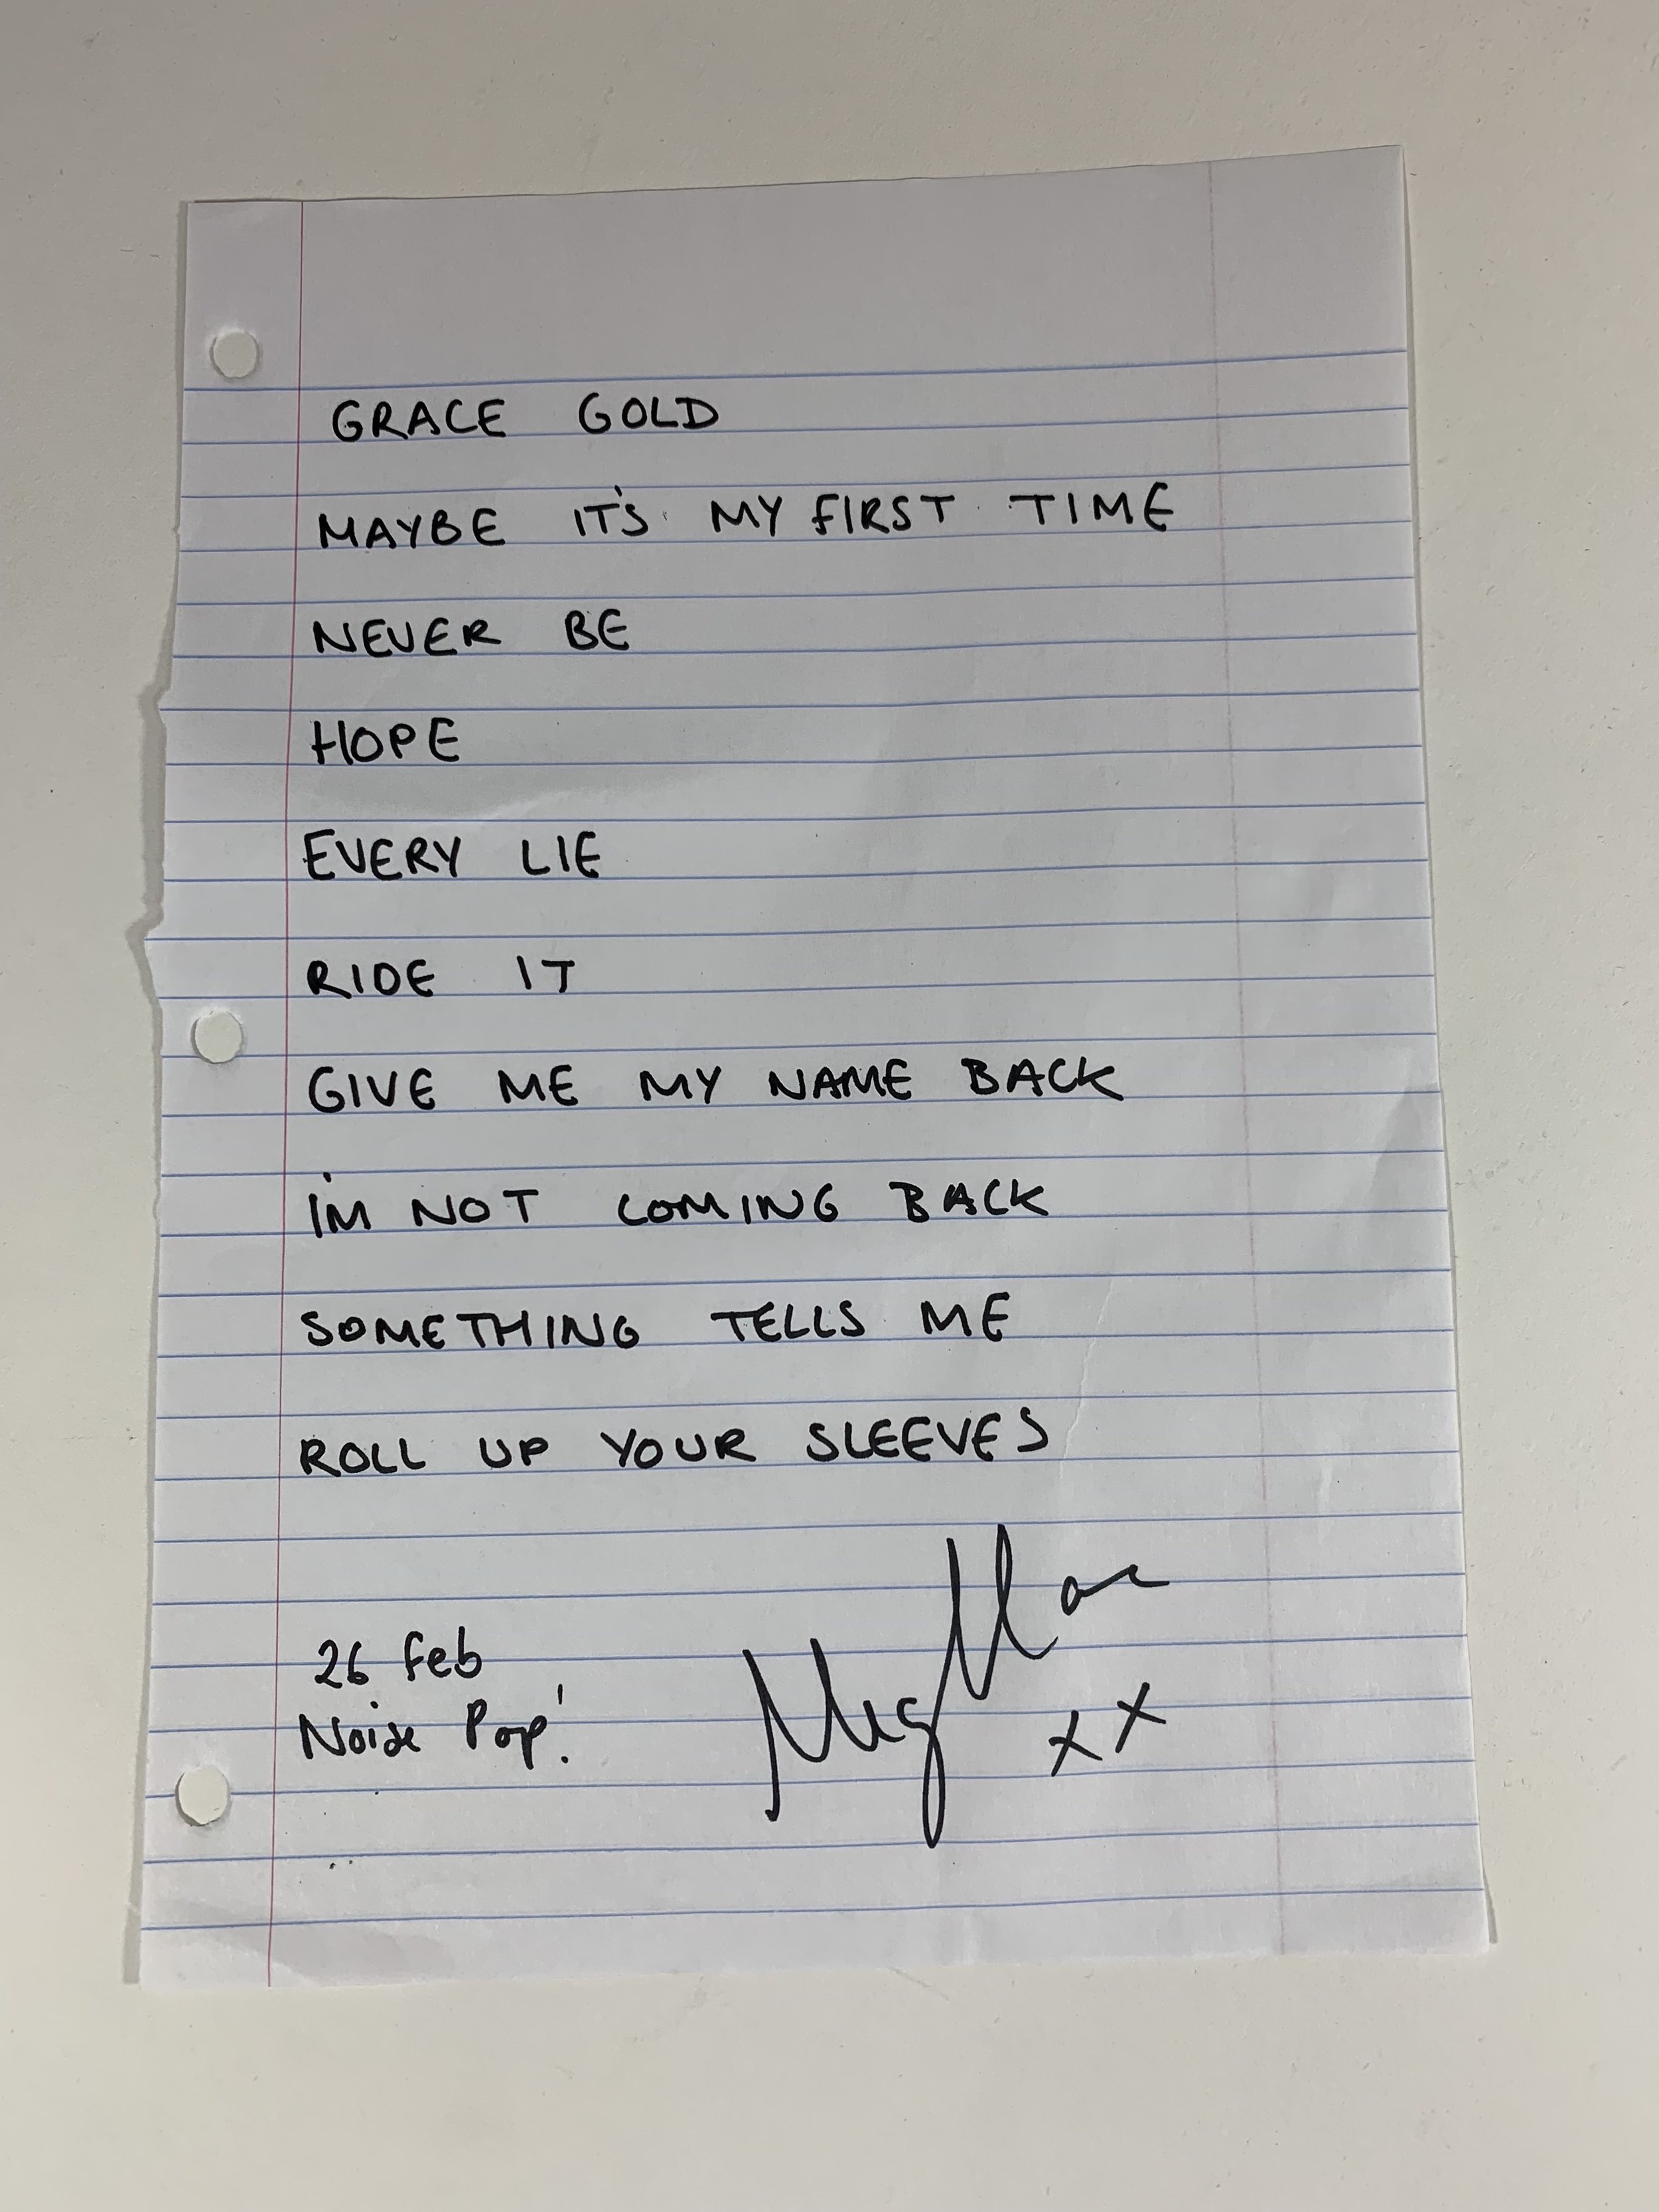 GRACE GOLD
MAYBE IT'S MY FIRST TIME
NEVER BE
HOPE
EVERY LIE
RIDE IT
GIVE ME MY NAME BACK
I'M NOT COMING BACK
SOMETHING TELLS ME
ROLL UP YOUR SLEEVES
26 Feb
Noise Pop!
Meg Mac
xx